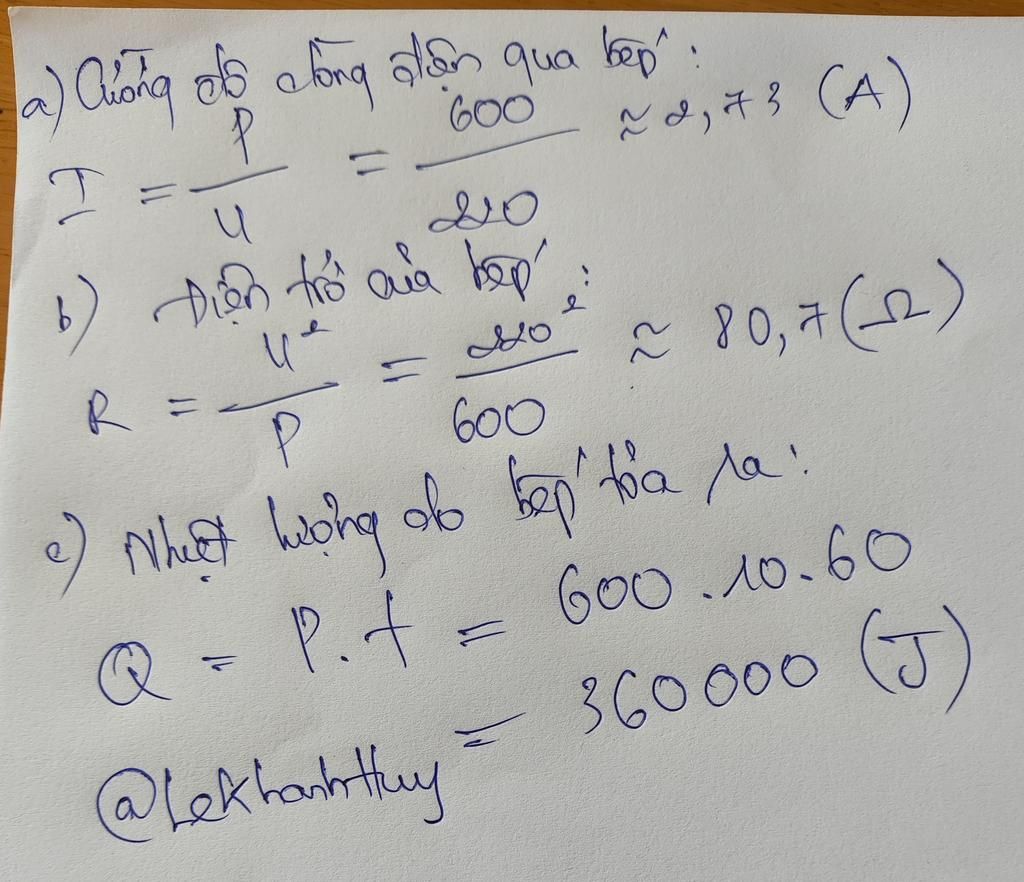 a) Cường độ dòng điện qua bếp:
I = P/U = 600/220 ≈ 2,73 (A)
b) Điện trở của bếp:
R = U²/P = 220²/600 ≈ 80,7 (Ω)
c) Nhiệt lượng do bếp tỏa ra:
Q = P.t = 600.10.60
= 360000 (J)
@LeKhanhHuy